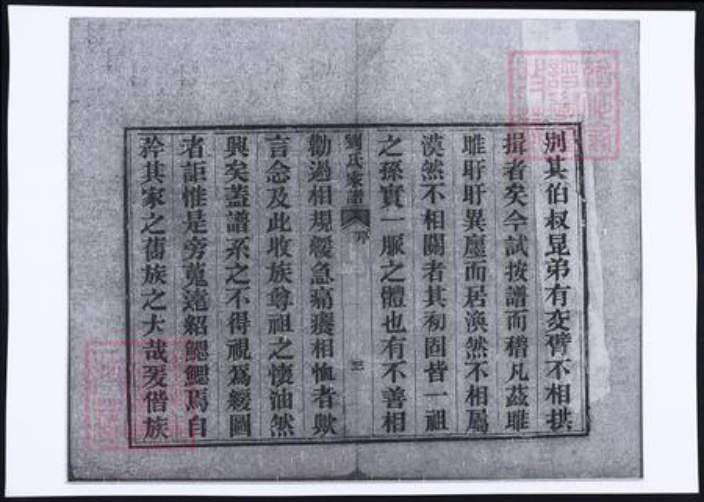 別其伯叔昆弟有交臂不相揖
揖者矣今試按譜而稽凡茲雎
雎盱盱異廛而居渙然不相屬
漠然不相關者其初固皆一祖
之孫實一脈之體也有不善相
劉氏家譜 序 三
勸過相規緩急痛癢相恤者歟
言念及此收族尊祖之懷油然
興矣蓋譜系之不得視為緩圖
者詎惟是旁蒐遠紹鰓鰓焉自
矜其家之舊族之大哉爰偕族